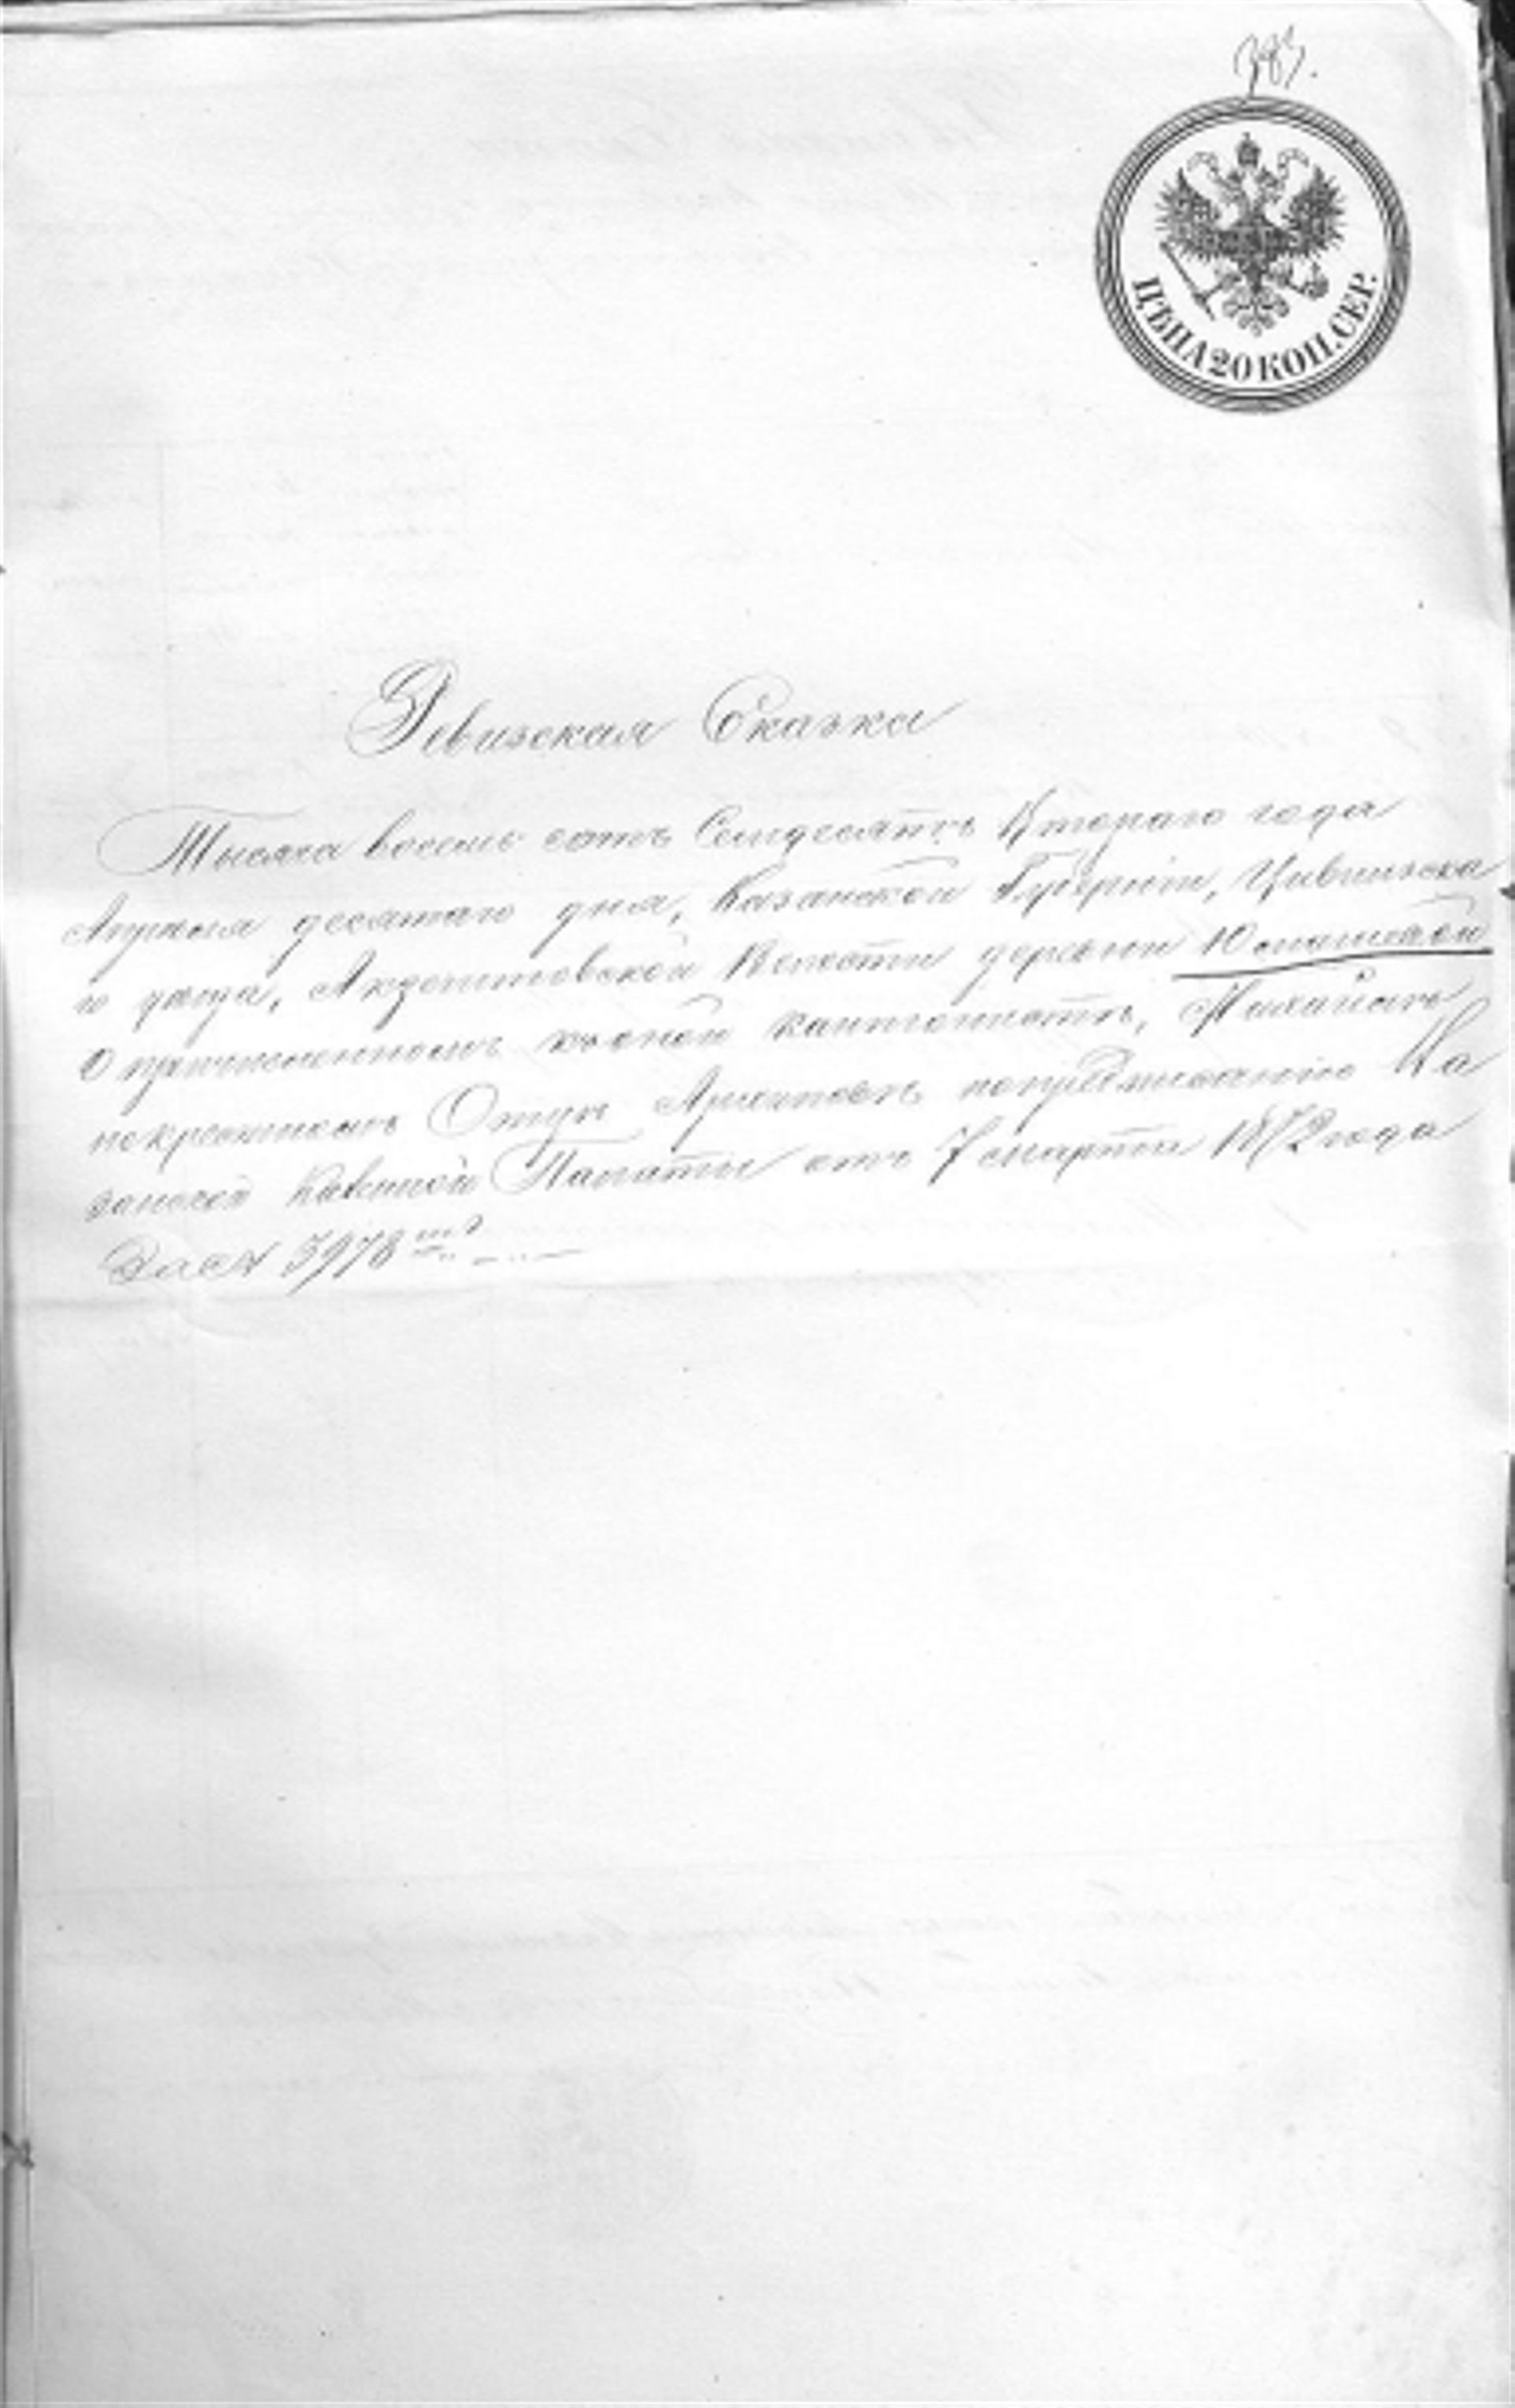 383.
ЦѢНА 20 КОП. СЕР.
Ревизская Сказка
Тысяча восемь сотъ Семдесятъ Втораго года
Апреля десятаго дня, Казанской Губерніи, Цивильска
го уезда, Акзегитовской Волости деревни
О причисленномъ къ оной кантонистѣ, Михайлѣ
покрестномъ Отцѣ Архиповѣ попредписанію Ка
занской Казенной Палаты отъ 7 марта 1872 года
за № 3978